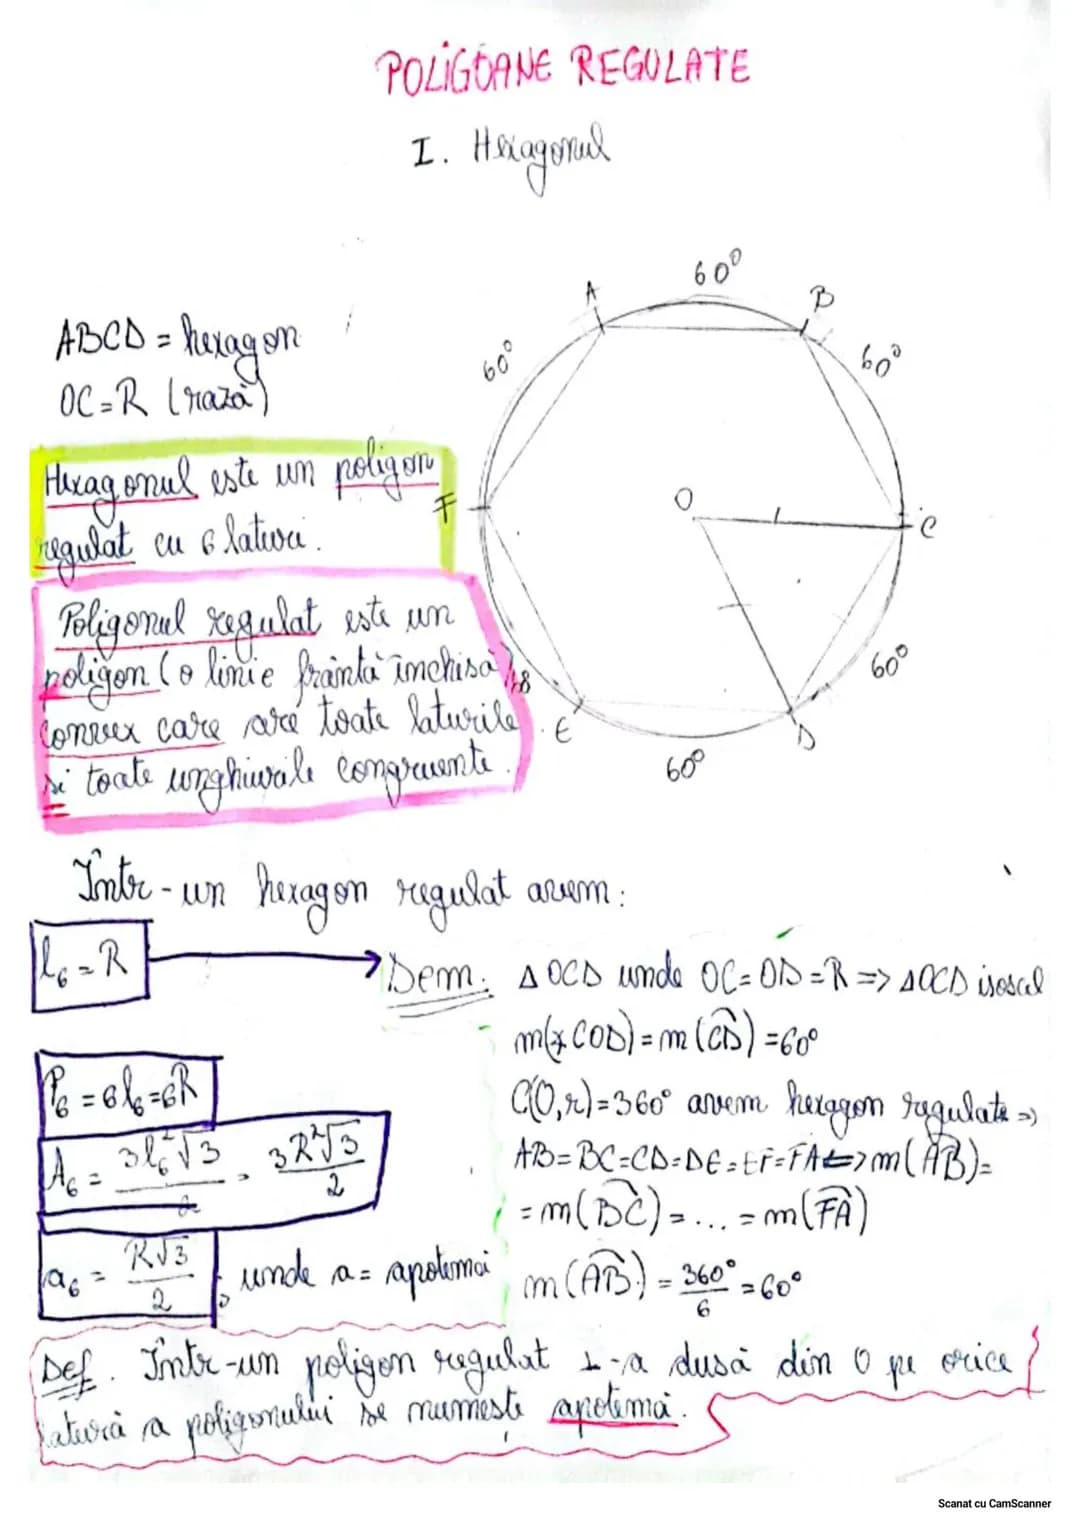 POLIGOANE REGULATE
I. Hexagonul
60°
A
B
60°
60°
ABCD = hexagon
OC=R (rază)
Hexagonul este un poligon
regulat cu 6 laturi.
F
O
C
Poligonul regulat este un
poligon (o linie frântă închisă)
convex care are toate laturile
si toate unghiurile congruente.
60°
E
D
60°
Într-un hexagon regulat avem:
l₆=R
Dem: Δ OCD unde OC=OD=R => ΔOCD isoscel
m(∢COD)=m(CD)=60°
P₆=6l₆=6R
C(O,r)=360° avem hexagon regulat =>
A₆ = 3l₆²√3/2 = 3R²√3/2
AB=BC=CD=DE=EF=FA<=>m(AB)=
=m(BC)=...=m(FA)
a₆ = R√3/2, unde a= apotemă
m(AB) = 360°/6 =60°
Def. Într-un poligon regulat ⊥-a dusă din O pe orice
latură a poligonului se numește apotemă.
Scanat cu CamScanner